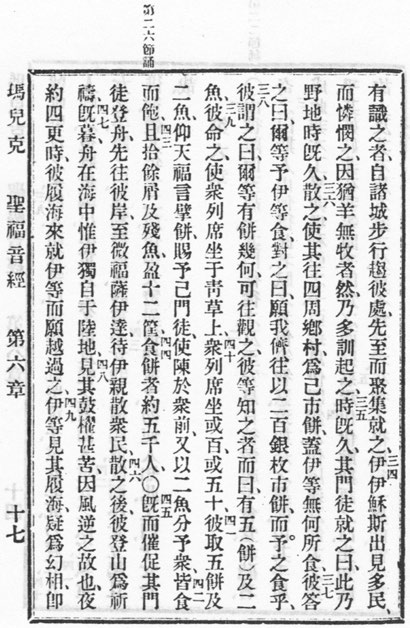 第二六節誦
有識之者、自諸城步行趨彼處、先至而聚集就之、三四伊伊穌斯出見多民、
而憐憫之、因猶羊無牧者然、乃多訓起之、三五時旣久、其門徒就之曰、此乃
野地、時旣久、三六散之、使其往四周鄉村、爲己市餅、蓋伊等無何所食、三七彼答
之曰、爾等予伊等食、對之曰、願我儕往以二百銀枚市餅、而予之食乎、
三八彼謂之曰、爾等有餅幾何、可往觀之、彼等知之而曰、有五(餅)及二
魚、三九彼命之、使衆列席坐于靑草上、四十衆列席坐、或百或五十、四一彼取五餅及
二魚、仰天福言、擘餅賜予己門徒、使陳於衆前、又以二魚分予衆、四二皆食
而飽、四三且拾餘屑及殘魚、盈十二筐、四四食餅者約五千人、〇四五旣而催促其門
徒登舟、先往彼岸、至微福薩伊達、待伊親散衆民、四六散之後、彼登山爲祈
禱、四七旣暮、舟在海中、惟伊獨自于陸地、四八見其鼓櫂甚苦、因風逆之故也、夜
約四更時、彼履海來就伊等、而願越過之、四九伊等見其履海、疑爲幻相、卽
瑪兒克 聖福音經 第六章 十七